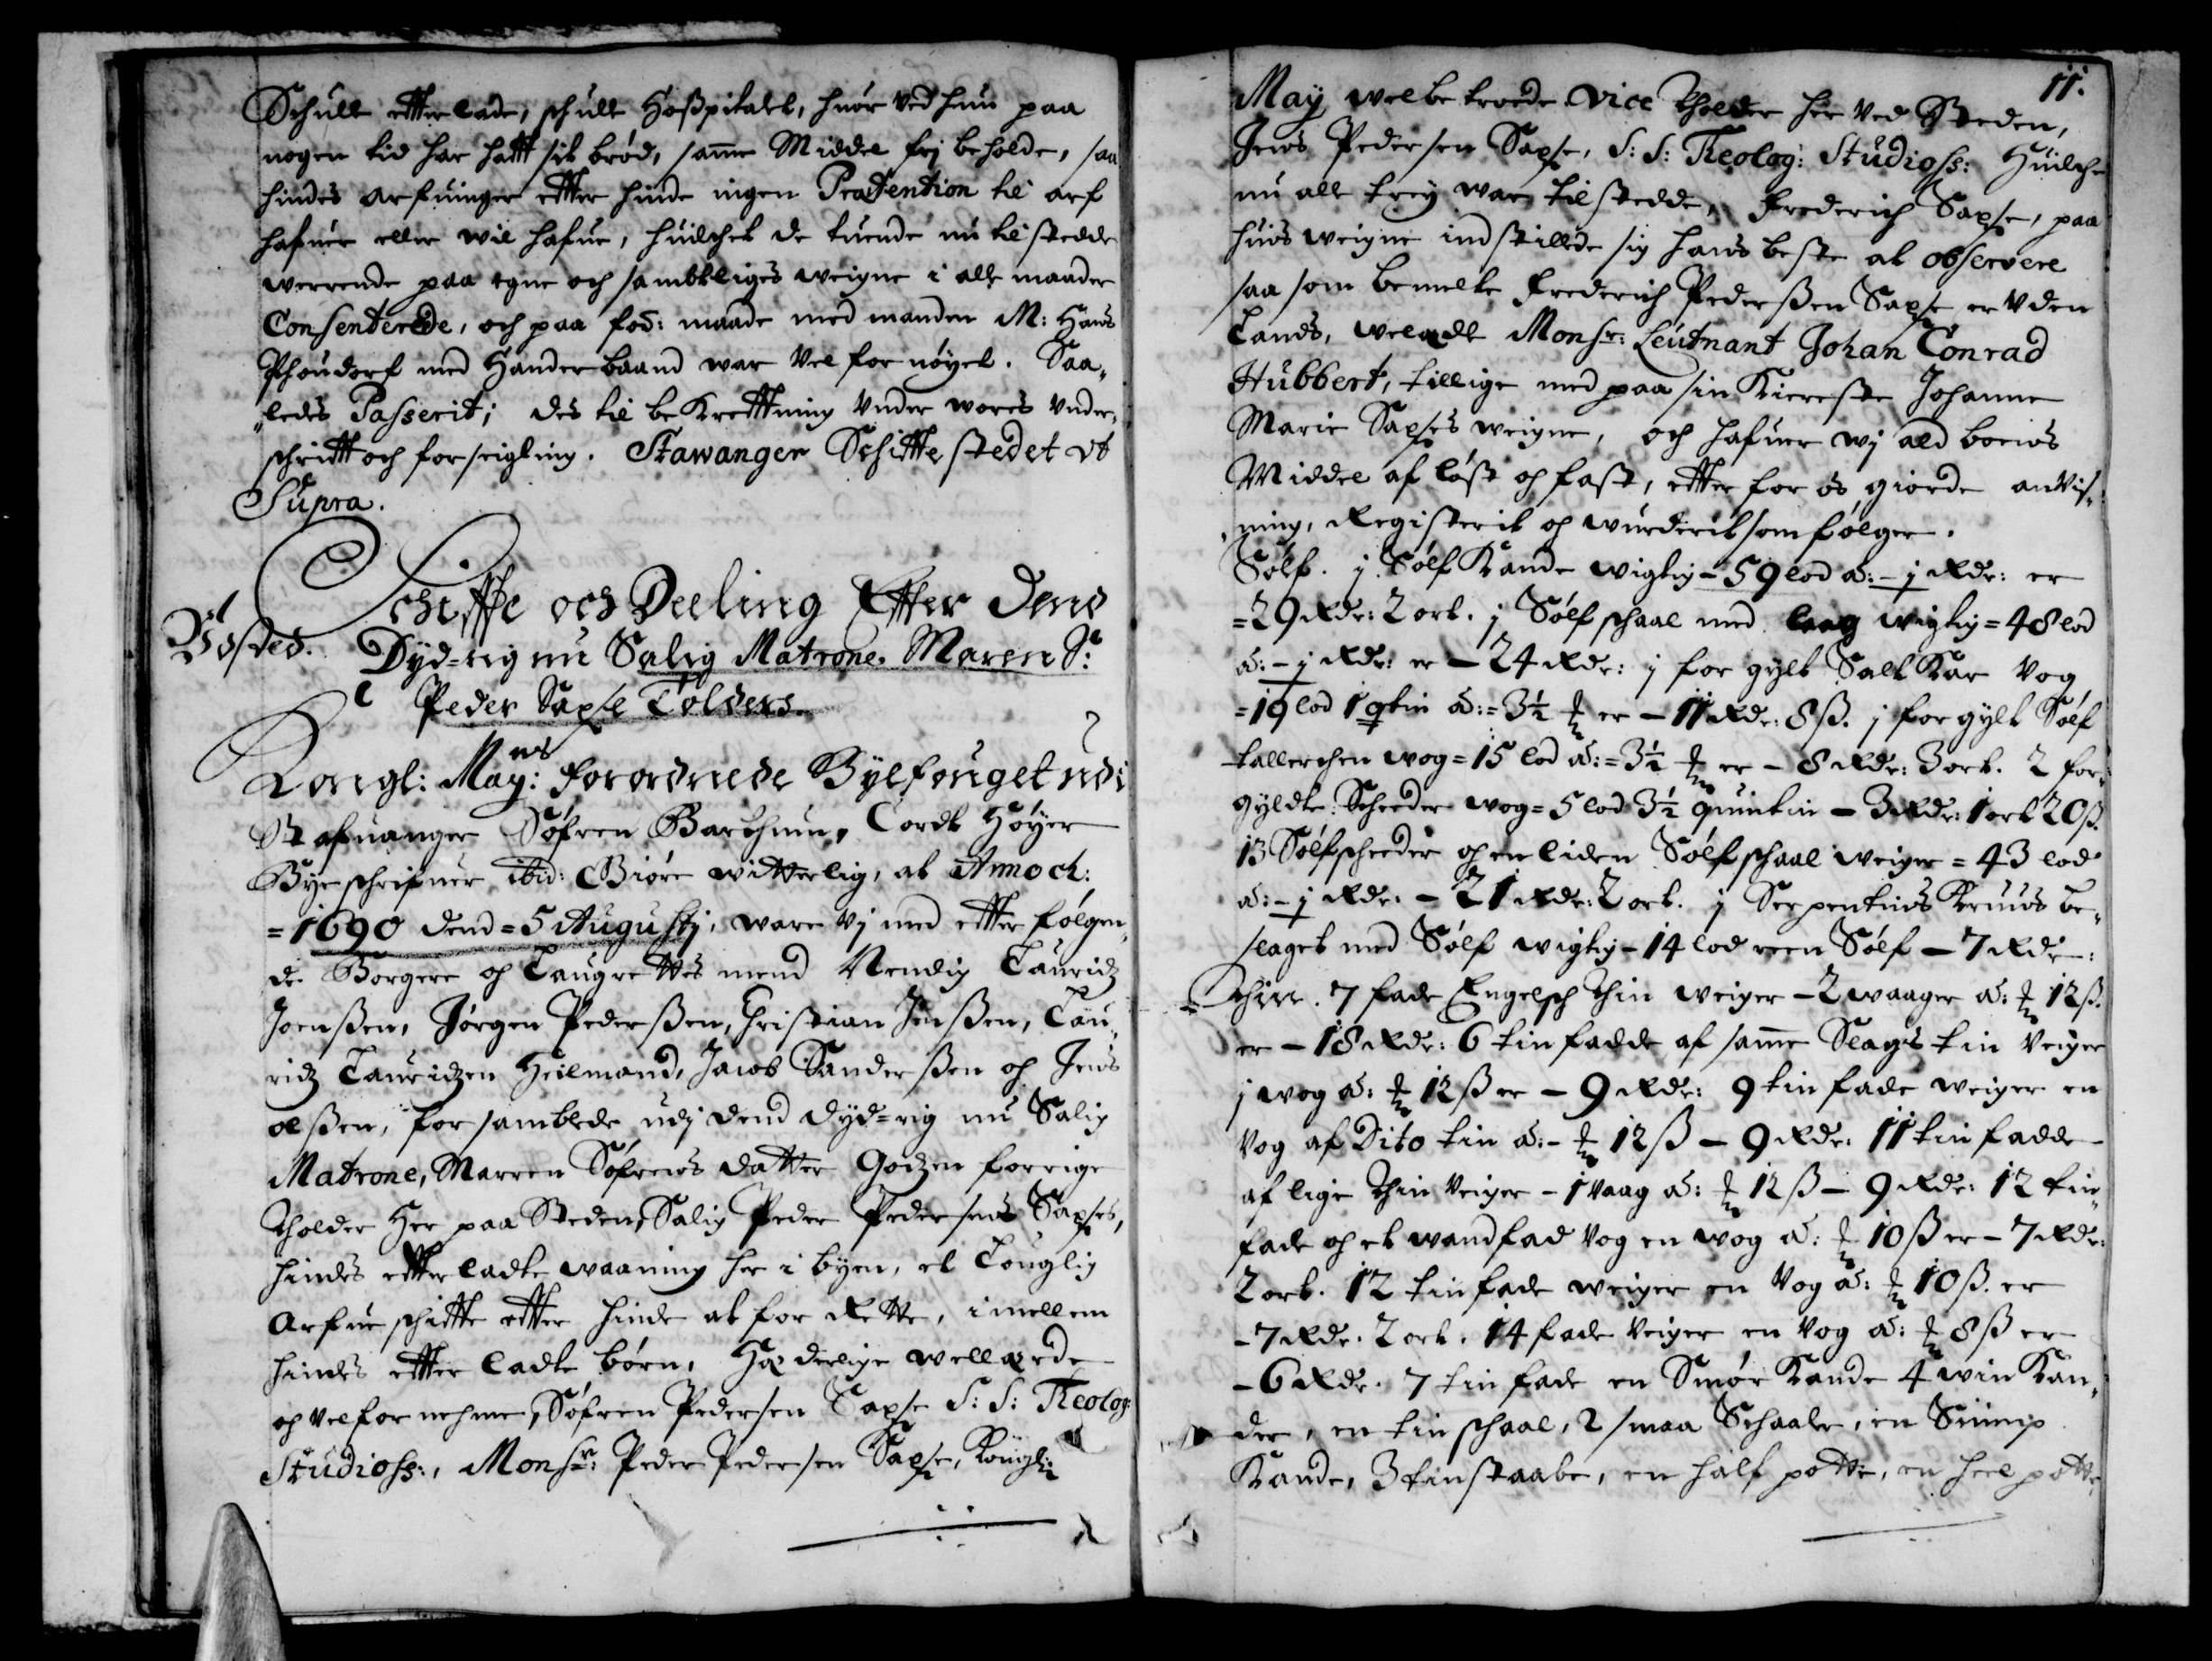 Schulle efterlade, schulle Hoßpitalet, huor ved hun paa
nogen tid har haft sit brød, samme Middel frj beholde, saa
hindes arfuinger efter hinde ingen Prætention til arf
hafuer eller wil hafue, huilchet de tuende nu tilstedde
werrende paa egne och sambtliges weigne i alle maader
Consenterede, och paa fod: maade med manden M: Hans
med Hander baand war vel fornøyet. Saa„
„ledes Passerit; des til bekrefttning under wores under„
schrifft och forseigling. Stawanger Schiffte stedet vt
Supra.
Schiffte och Deeling Effter Dend
Bysted. Dyd=rig nu Salig Matrone. Maren Sl:
Peder Sapse Tolders.
Kongl: May:ns forordnede Byefouget udi
Stafuanger Søfren Barthum, Cordt Høyer
Byeschrifuer ibid: Giøre witterlig, at Anno ch:
=1690 dend=5 Augustj, ware vj med efter følgen„
de Borgere och Laugrettes mend Nemlig Lauridz
Joenßen, Jørgen Pederßen, Christian Jenßen, Lau„
ridz Lauridzen Heilmand, Jacob Sanderßen och Jens
olßen, forsamblede udj dend dyd=rig nu Salig
Matrone, Marren Søfrens datter Godzen forrige
Tholder Her paa Steden, Salig Peder Pedersens Sapses,
hindes efterladte waaning her i byen, et Louglig
Arfue schiffte efter hinde at forrette, imellem
hindes efter ladte børn, Hæderlige wellærde
och velfornehme, Søfren Pedersen Sapse S: S: Teolog:
Studioss:, Monsr: Peder Pedersen Sapse, Kongl:
11.
May welbetroede vice Tholder her ved Steden,
Jens Pedersen Sapse, S: S: Teolog: Studioss: Huilche
nu alle trey war tilstedde, Frederich Sapse, paa
huis weigne indstillede sig hans beste at observere
saa som bemelte Frederich Pederßen Sapse er uden
Lands, welædle Monsr: Leutnant Johan Conrad
Hubbert, tillige med paa sin Kiereste Johanne
Marie Sapses weigne, och hafuer wj ald boens
Middel af løst och fast, efter for os giorde anviß„
„ning, Registerit och wurderit som følger.
Sølf. j. Sølf Kande wigtig - 59 lod a͛: - j Rdr: er
=29 Rdr: 2 ort. j Sølf schaal med laag wigtig=48 lod
a͛: - j Rdr: er - 24 Rdr: j for gylt Salt Kar vog
=19 lod 1 qtin a͛:=3½ ꝉ er - 11 Rdr: 8 ß. j forgylt Sølf
tallerchen wog=15 lod a͛:=3½ ꝉ er - 8 Rdr: 3 ort. 2 for„
gyldte Scheeder wog=5 lod 3½ quintin - 3 Rdr: 1 ort 20 ß.
13 Sølfscheeder och en liden Sølf schaal weiger=43 lod
a͛: - j Rdr. - 21 Rdr: 2 ort. j Serpentins Kruus be„
slaget med Sølf wigtig - 14 lod reen Sølf - 7 Rdr:
Thin. 7 fade Engelsch Thin weiger - 2 waager a͛: ꝉ 12 ß.
er - 18 Rdr: 6 tin fadde af samme Slags tin veiger
j wog a͛: ꝉ 12 ß er - 9 Rdr: 9 tin fade weiger en
vog af Dito tin a͛: - ꝉ 12 ß - 9 Rdr: 11 tin fadde
af lige Thin veiger - 1 vaag a͛: ꝉ 12 ß - 9 Rdr: 12 tin„
fade och et wandfad vog en wog a͛: ꝉ 10 ß er - 7 Rdr:
2 ort. 12 tin fade weiger en vog a͛: ꝉ 10 ß. er
-7 Rdr. 2 ort. 14 fade veiger en vog a͛: ꝉ 8 ß er
-6 Rdr. 7 tin fade en Smør Kande 4 win Kan„
der, en tin schaal, 2 smaa Schaale, en
Kande, 3 tin staabe, en half potte, en heel potte,